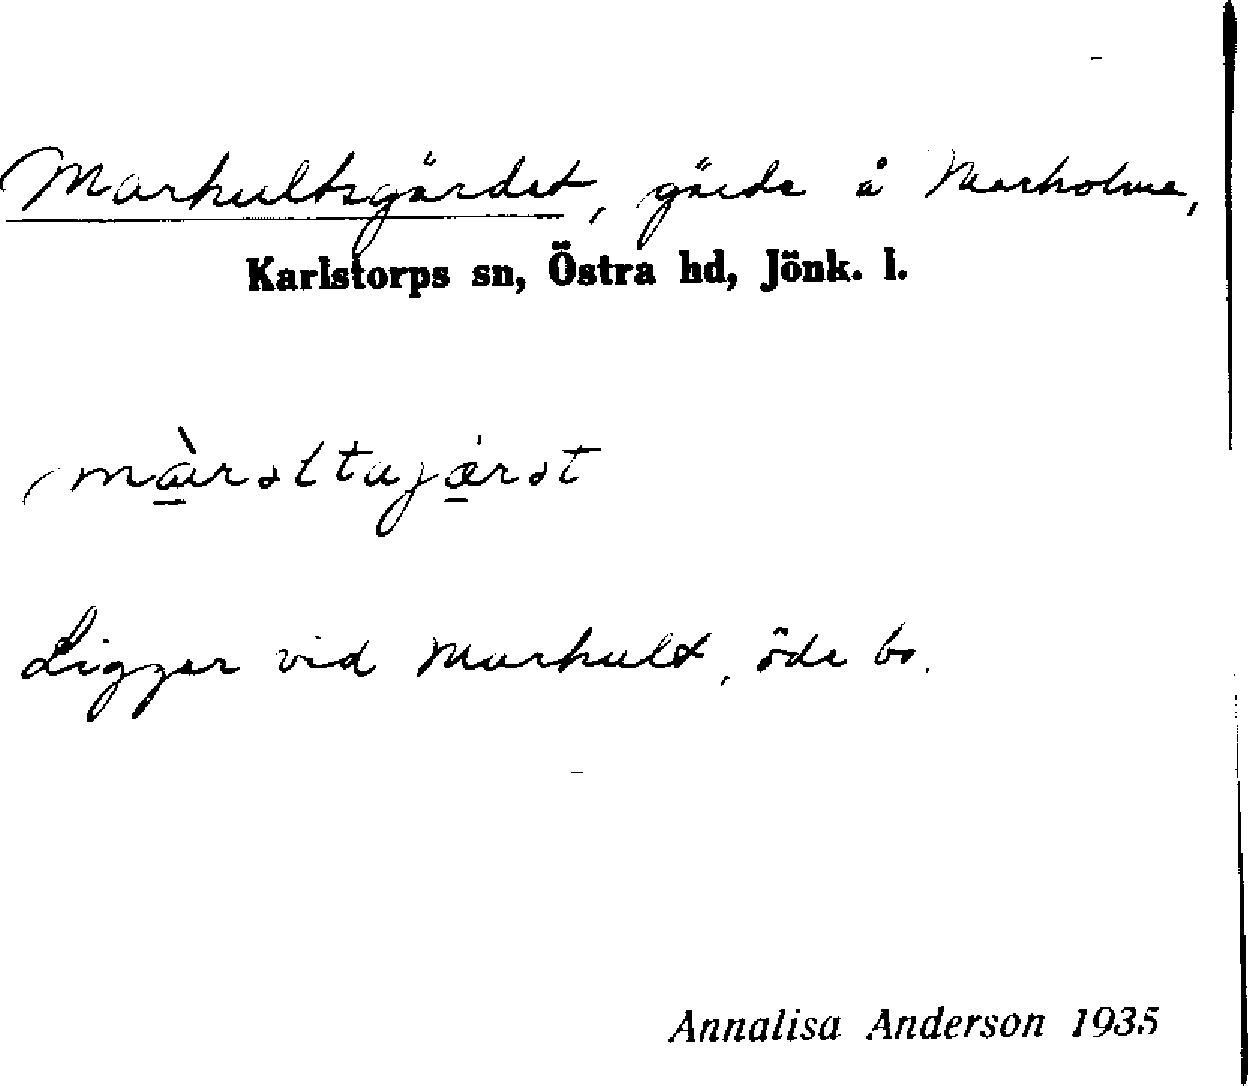 Markultsgärdet, gärde å Marholma,
Karlstorps sn, Östra hd, Jönk. l.
Ligger vid Markult, öde bo.
Annalisa Anderson 1935